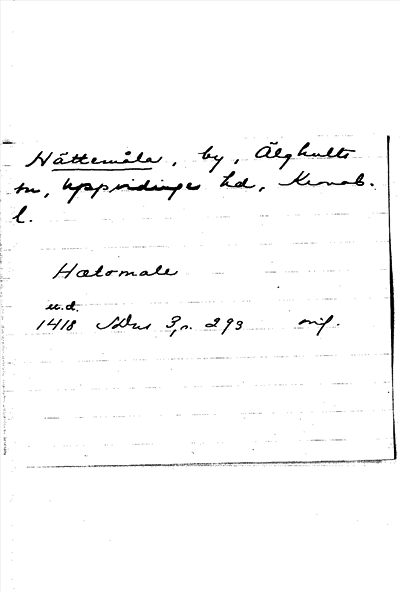 Hättemåla, by, Älghults
sn, Uppvidinge hd, Kronob.
l.
Hætomale
u.d.
1418 SDns 3, s. 293 orig.